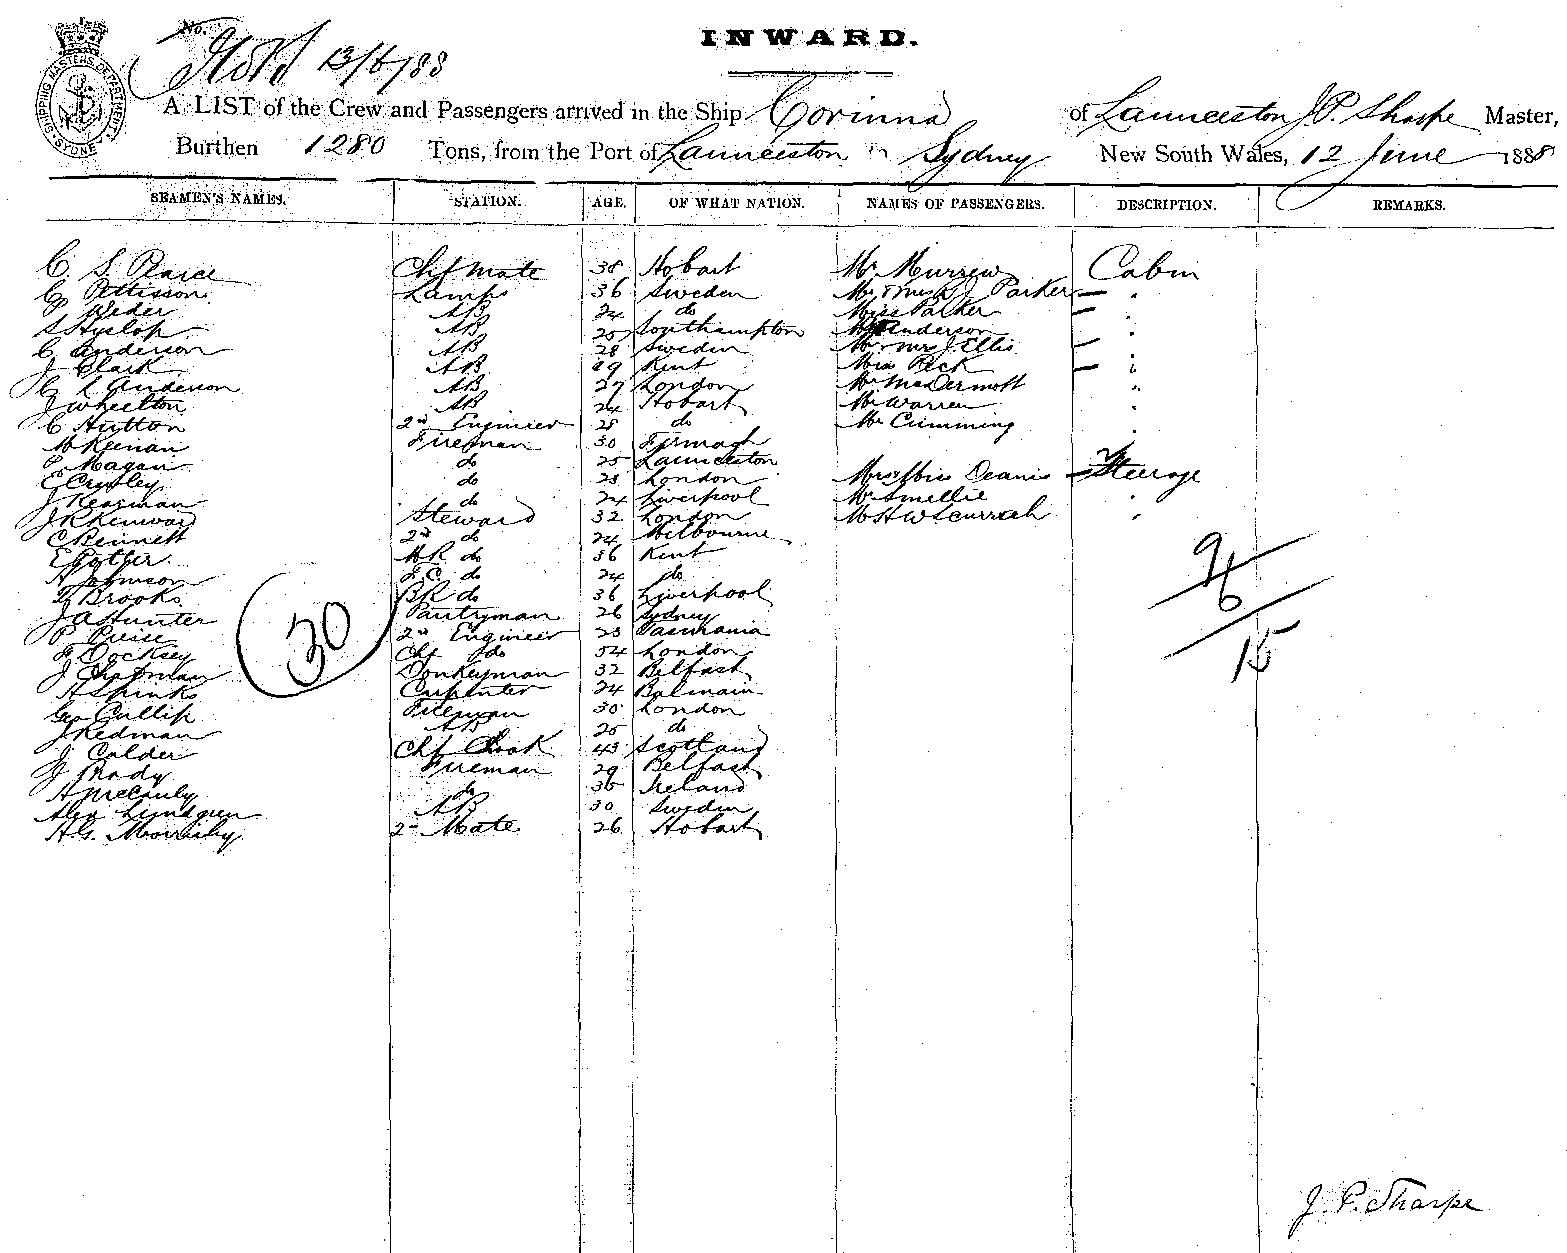 No.
13/6/88
INWARD.
SHIPPING MASTERS DEPARTMENT SYDNEY
A LIST of the Crew and Passengers arrived in the Ship Corinna of Launceston J P. Sharpe Master,
Burthen 1280 Tons, from the Port of Launceston Sydney New South Wales, 12 June 1888
SEAMEN'S NAMES. STATION. AGE. OF WHAT NATION. NAMES OF PASSENGERS. DESCRIPTION. REMARKS.
C. S. Pearce Chf Mate 38 Hobart Mr Murrew Cabin
C Pettisson Lamps 36 Sweden Mr & Mrs J Parker "
AB 24 do Miss Parker "
S Hyslop AB 25 Southampton Anderson "
C Anderson AB 28 Sweden Mr & Mrs J. Ellis "
J Clark AB 29 Kent Miss Peck "
C L Anderson AB 27 London Mr MacDermott "
J Wheelton AB 24 Hobart Mr Warren "
C Hutton 2nd Engineer 28 do Mr Cumming "
M Keenan Fireman 30 Armagh
P. Magan do 25 Launceston Mrs & Miss Deanis Steerage
E Crysley do 23 London Mr Smellie "
J Kearman do 24 Liverpool Mr H W Scurrah "
J R Kenward Steward 32 London
C Bennett 2nd do 24 Melbourne
E Potter MR do 36 Kent
A Johnson F.C. do 24 do
Brooks BR do 36 Liverpool
J A Hunter Pantryman 26 Sydney
P. Peirse 2nd Engineer 23 Tasmania
F Docksey Chf do 54 London
J Chapman Donkeyman 32 Belfast
A Spinks Carpenter 24 Balmain
Geo Cullip Fireman 30 London
J Redman AB 25 do
J Calder Chf Cook 43 Scotland
J Brady Fireman 29 Belfast
A McCauly do 35 Ireland
Alex Lundgren AB 30 Sweden
H. G. Morrisby 2nd Mate 26 Hobart
30
9
6
15
J. P. Sharpe